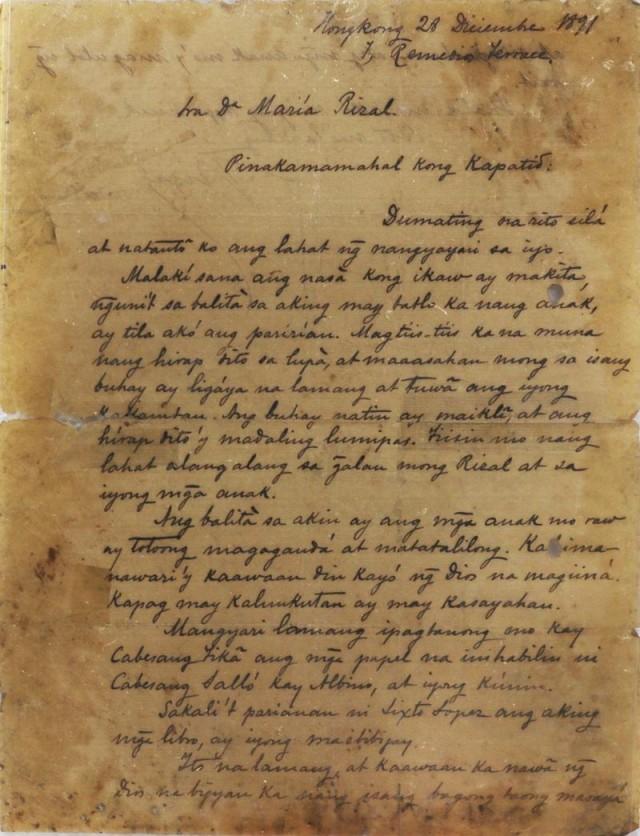 Hongkong 28 Diciembre 1891
7, Remedios Terrace.
Sra Dª María Rizal.
Pinakamamahal kong Kapatid:
Dumating na rito silá
at natantô ko ang lahat ng̃ nangyayari sa iyo.
Malakí sana ang nasà kong ikaw ay makita,
ng̃uni't sa balità sa aking may tatlo ka nang anák,
ay tila akó ang paririan. Magtiis-tiis ka na muna
nang hirap dito sa lupà, at maaasahan mong sa isang
buhay ay ligáya na lamang at tuwâ ang iyong
kakamtan. Ang buhay natin ay maiklî, at ang
hirap dito'y madaling lumipas. Tiisin mo nang
lahat alang alang sa ng̃alan mong Rizal at sa
iyong mg̃a anak.
Ang balità sa akin ay ang mg̃a anak mo raw
ay totoong magagandá at matatalilong.
nawari'y kaawaan din kayó ng̃ dios na magiiná.
Kapag may kalunkutan ay may kasayahan.
Mangyari lamang ipagtanong mo kay
Cabesang Tikâ ang mg̃a papel na inihabilin ni
Cabesang Salló kay Albino, at iyong kúnin.
Sakali't parianan ni Sixto Lopez ang aking
mg̃a libro, ay iyong maibibigay.
Itó na lamang, at kaawaan ka nawâ ng̃
dios na bigyan ka nang isang bagong taong masayá